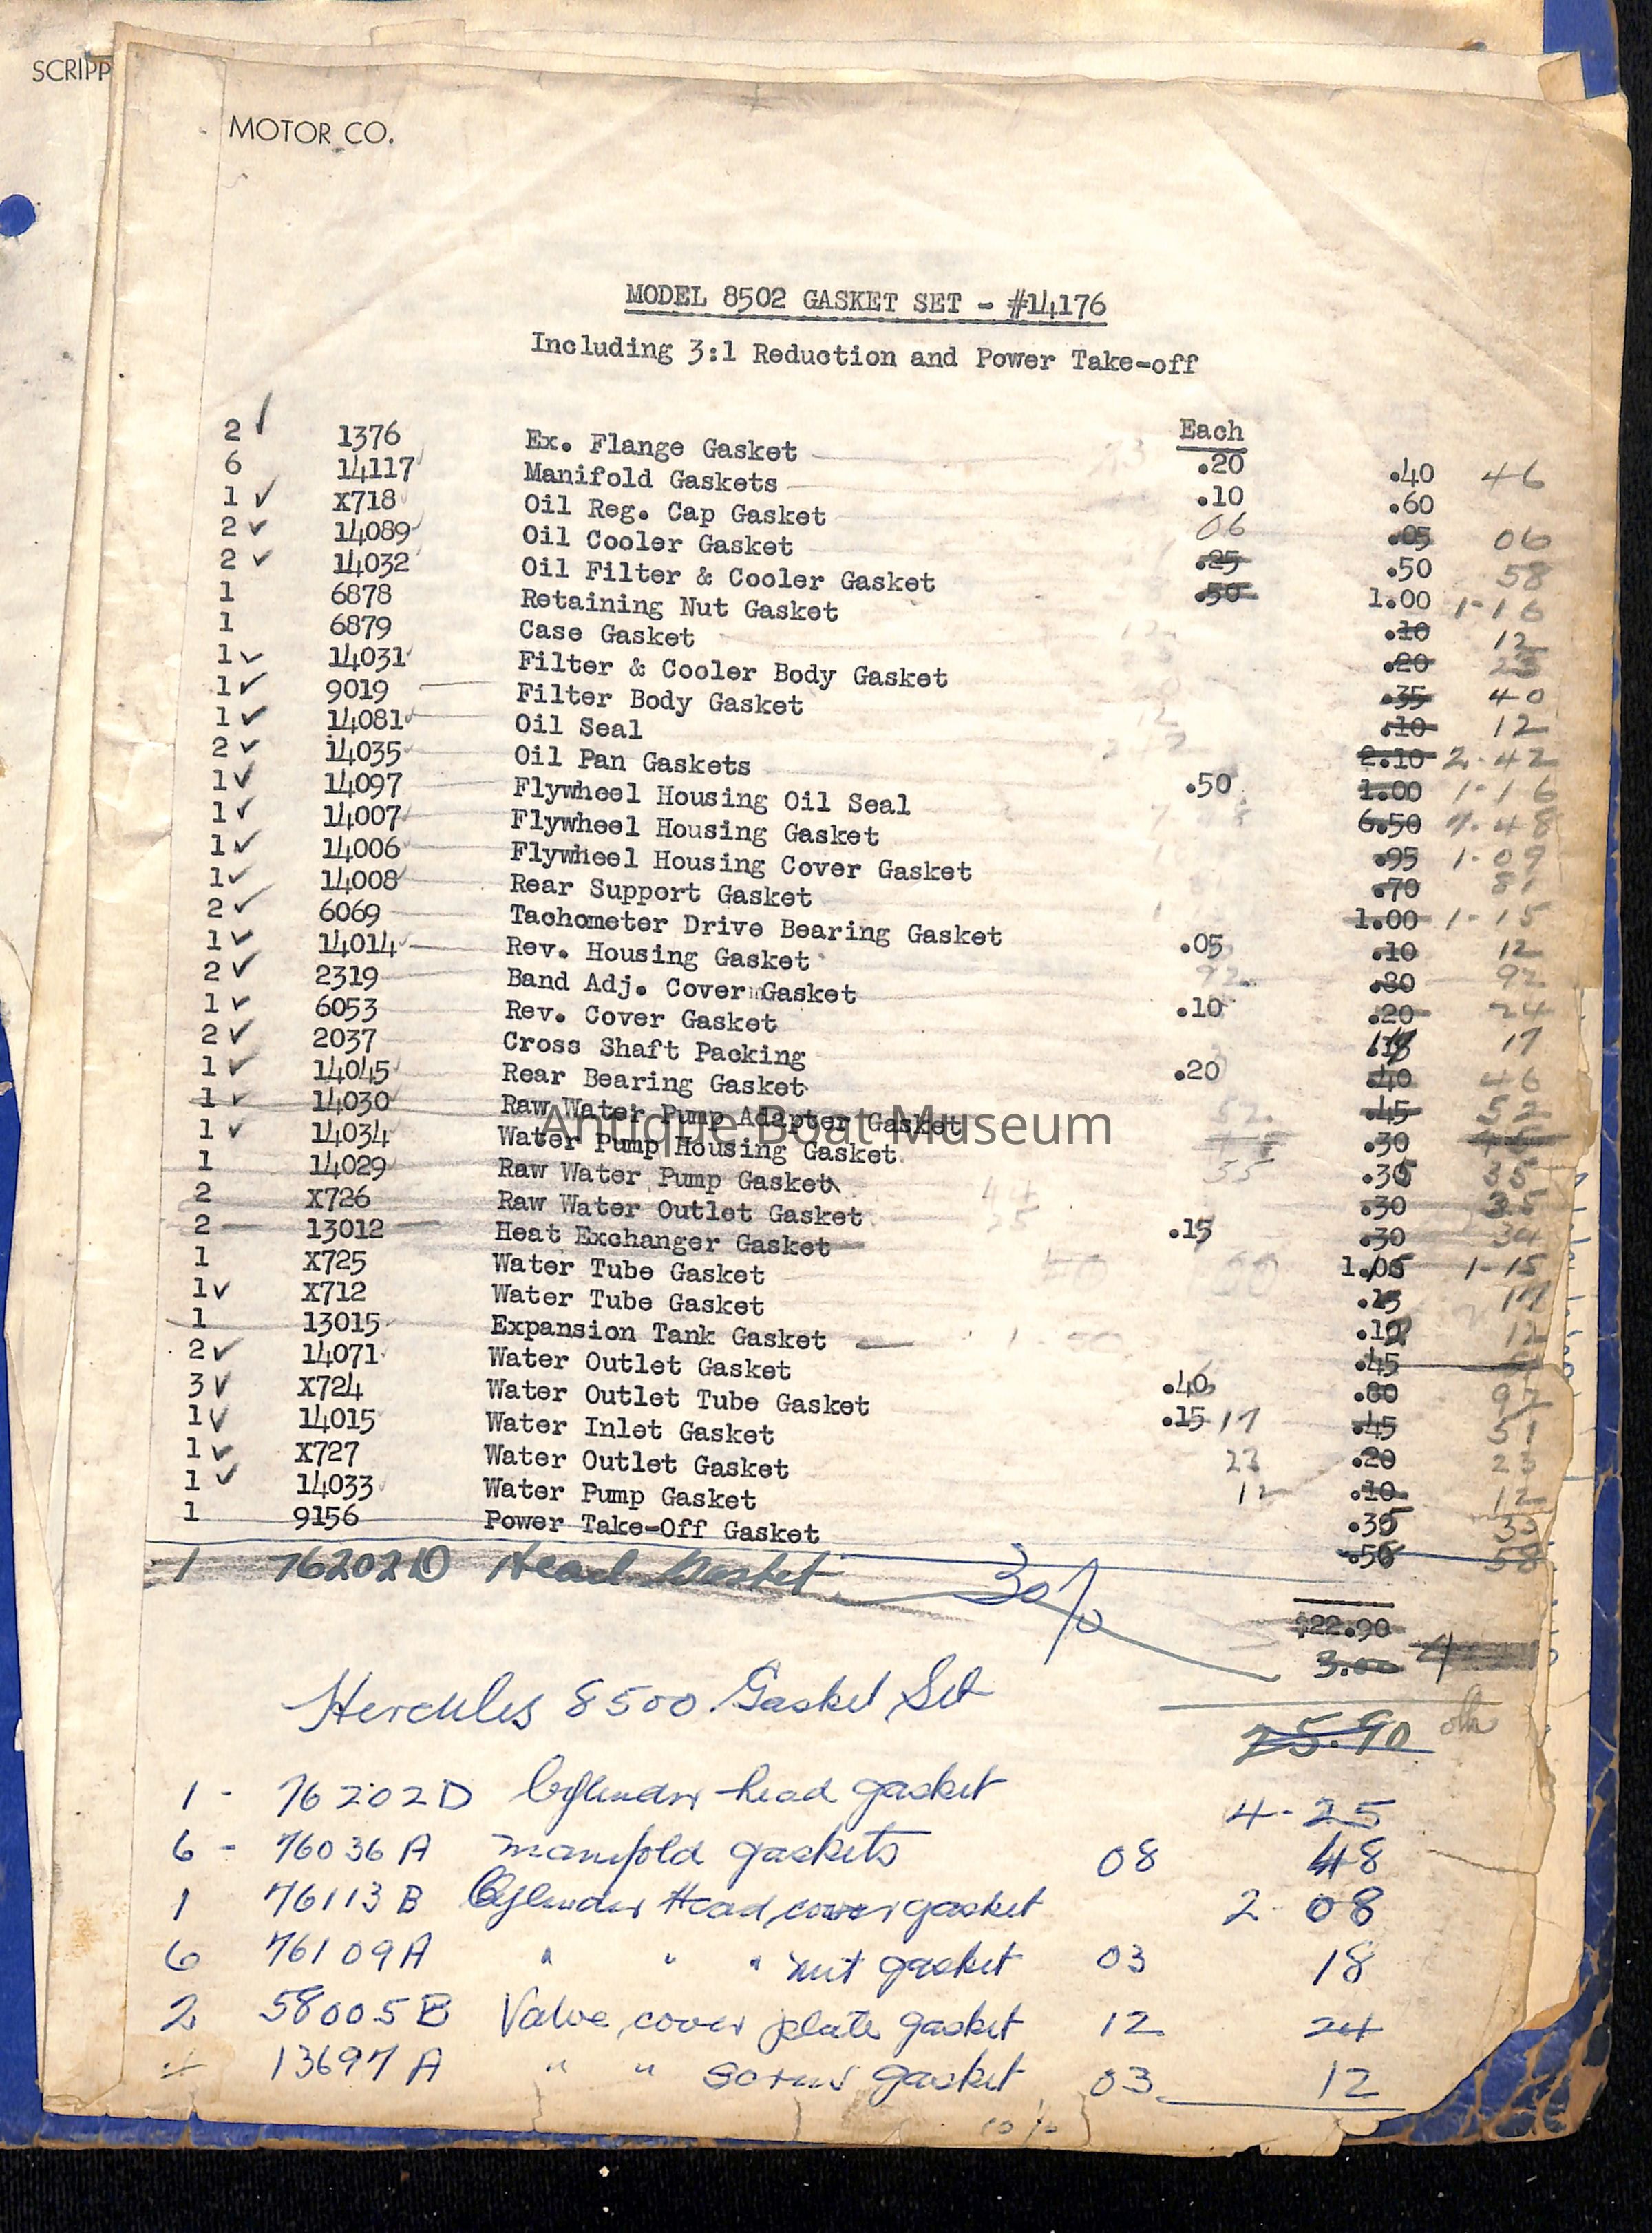 SCRIPP
MOTOR CO.
MODEL 8502 GASKET SET - #14176
Including 3:1 Reduction and Power Take-off
Each
2 1376 Ex. Flange Gasket .20 .40 46
6 14117 Manifold Gaskets .10 .60
1 X718 Oil Reg. Cap Gasket 06 .05 06
2 14089 Oil Cooler Gasket .25 .50 58
2 14032 Oil Filter & Cooler Gasket .50 1.00 1-16
1 6878 Retaining Nut Gasket .10 12
1 6879 Case Gasket .20 23
1 14031 Filter & Cooler Body Gasket .35 40
1 9019 Filter Body Gasket .10 12
1 14081 Oil Seal 2.10 2.42
2 14035 Oil Pan Gaskets .50 1.00 1-16
1 14097 Flywheel Housing Oil Seal 6.50 7.48
1 14007 Flywheel Housing Gasket .95 1-09
1 14006 Flywheel Housing Cover Gasket .70 81
1 14008 Rear Support Gasket 1.00 1-15
2 6069 Tachometer Drive Bearing Gasket .05 .10 12
1 14014 Rev. Housing Gasket 92 .80 92
2 2319 Band Adj. Cover Gasket .10 .20 24
1 6053 Rev. Cover Gasket 17
2 2037 Cross Shaft Packing .20 .40 46
1 14045 Rear Bearing Gasket 52 .45 52
1 14030 Raw Water Pump Adapter Gasket .30
1 14034 Water Pump Housing Gasket .35 35
1 14029 Raw Water Pump Gasket .30 35
2 X726 Raw Water Outlet Gasket .15 .30 34
2 13012 Heat Exchanger Gasket 1-15
1 X725 Water Tube Gasket .15 17
1 X712 Water Tube Gasket 12
1 13015 Expansion Tank Gasket .45
2 14071 Water Outlet Gasket .40 .80 92
3 X724 Water Outlet Tube Gasket .15 17 .45 51
1 14015 Water Inlet Gasket 23 .20 23
1 X727 Water Outlet Gasket 12 .10 12
1 14033 Water Pump Gasket .35
1 9156 Power Take-Off Gasket .50 58
1 76202D Head Gasket 30%
$22.90
3.00 4
Hercules 8500 Gasket Set 25.90
1 - 76202D Cylinder head gasket 4-25
6 - 76036A manifold gaskets 08 48
1 76113B Cylinder Head cover gasket 2 08
6 76109A " " " nut gasket 03 18
2 58005B Valve cover plate gasket 12 24
4 13697A " " screw gasket 03 12
10%
Antique Boat Museum